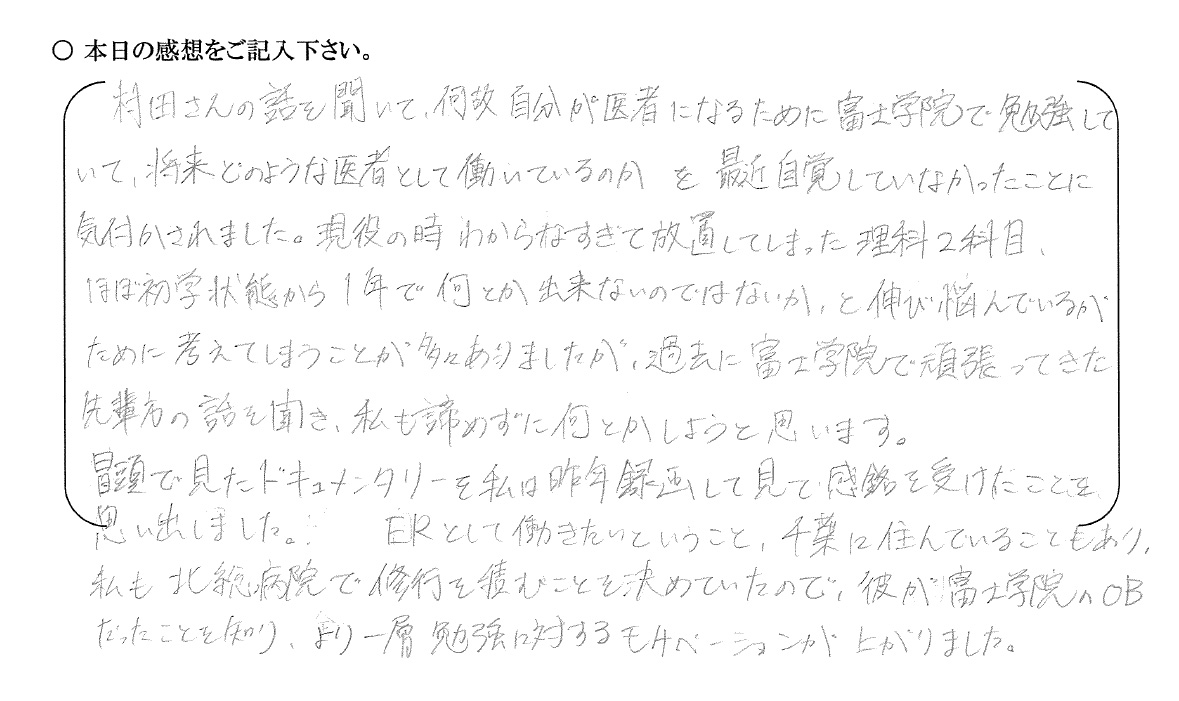 ○ 本日の感想をご記入下さい。
村田さんの話を聞いて、何故自分が医者になるために富士学院で勉強して
いて、将来どのような医者として働いているのか を 最近自覚していなかったことに
気付かされました。現役の時わからなすぎて放置してしまった理科2科目、
ほぼ初学状態から1年で何とか出来ないのではないか、と伸び悩んでいるが
ために考えてしまうことが多々ありましたが、過去に富士学院で頑張ってきた
先輩方の話を聞き、私も諦めずに何とかしようと思います。
冒頭で見たドキュメンタリーを私は昨年録画して見て感銘を受けたことを
思い出しました。 ERとして働きたいということ、千葉に住んでいることもあり、
私も北総病院で修行を積むことを決めていたので、彼が富士学院のOB
だったことを知り、より一層勉強に対するモチベーションが上がりました。